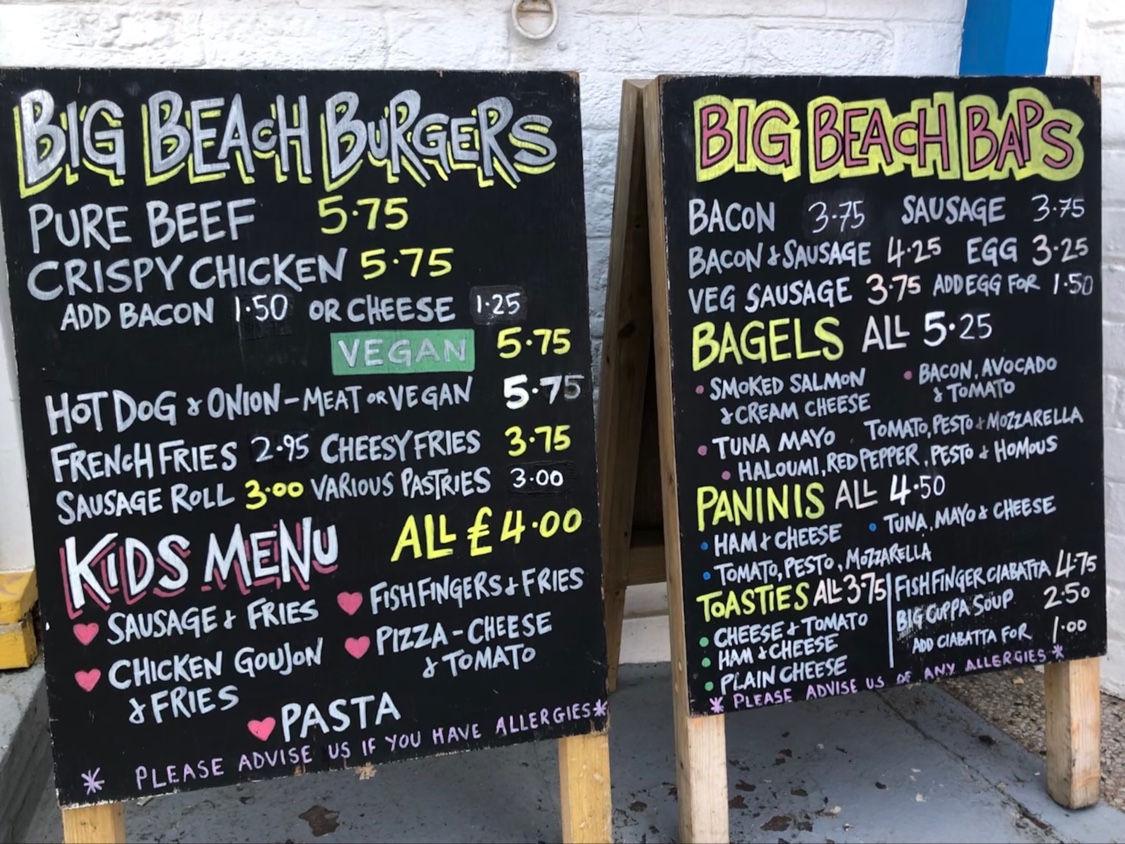 BIG BEACH BURGERS
PURE BEEF 5.75
CRISPY CHICKEN 5.75
ADD BACON 1.50 OR CHEESE 1.25
VEGAN 5.75
HOT DOG & ONION - MEAT OR VEGAN 5.75
FRENCH FRIES 2.95 CHEESY FRIES 3.75
SAUSAGE ROLL 3.00 VARIOUS PASTRIES 3.00
KIDS MENU ALL £4.00
SAUSAGE & FRIES
FISH FINGERS & FRIES
CHICKEN GOUJON
& FRIES
PIZZA - CHEESE
& TOMATO
PASTA
* PLEASE ADVISE US IF YOU HAVE ALLERGIES *
BIG BEACH BAPS
BACON 3.75 SAUSAGE 3.75
BACON & SAUSAGE 4.25 EGG 3.25
VEG SAUSAGE 3.75 ADD EGG FOR 1.50
BAGELS ALL 5.25
SMOKED SALMON
& CREAM CHEESE
BACON, AVOCADO
& TOMATO
TUNA MAYO TOMATO, PESTO & MOZZARELLA
HALOUMI, RED PEPPER, PESTO & HOMOUS
PANINIS ALL 4.50
HAM & CHEESE TUNA, MAYO & CHEESE
TOMATO, PESTO, MOZZARELLA
TOASTIES ALL 3.75
CHEESE & TOMATO
HAM & CHEESE
PLAIN CHEESE
FISH FINGER CIABATTA 4.75
BIG CUPPA SOUP 2.50
ADD CIABATTA FOR 1.00
* PLEASE ADVISE US OF ANY ALLERGIES *